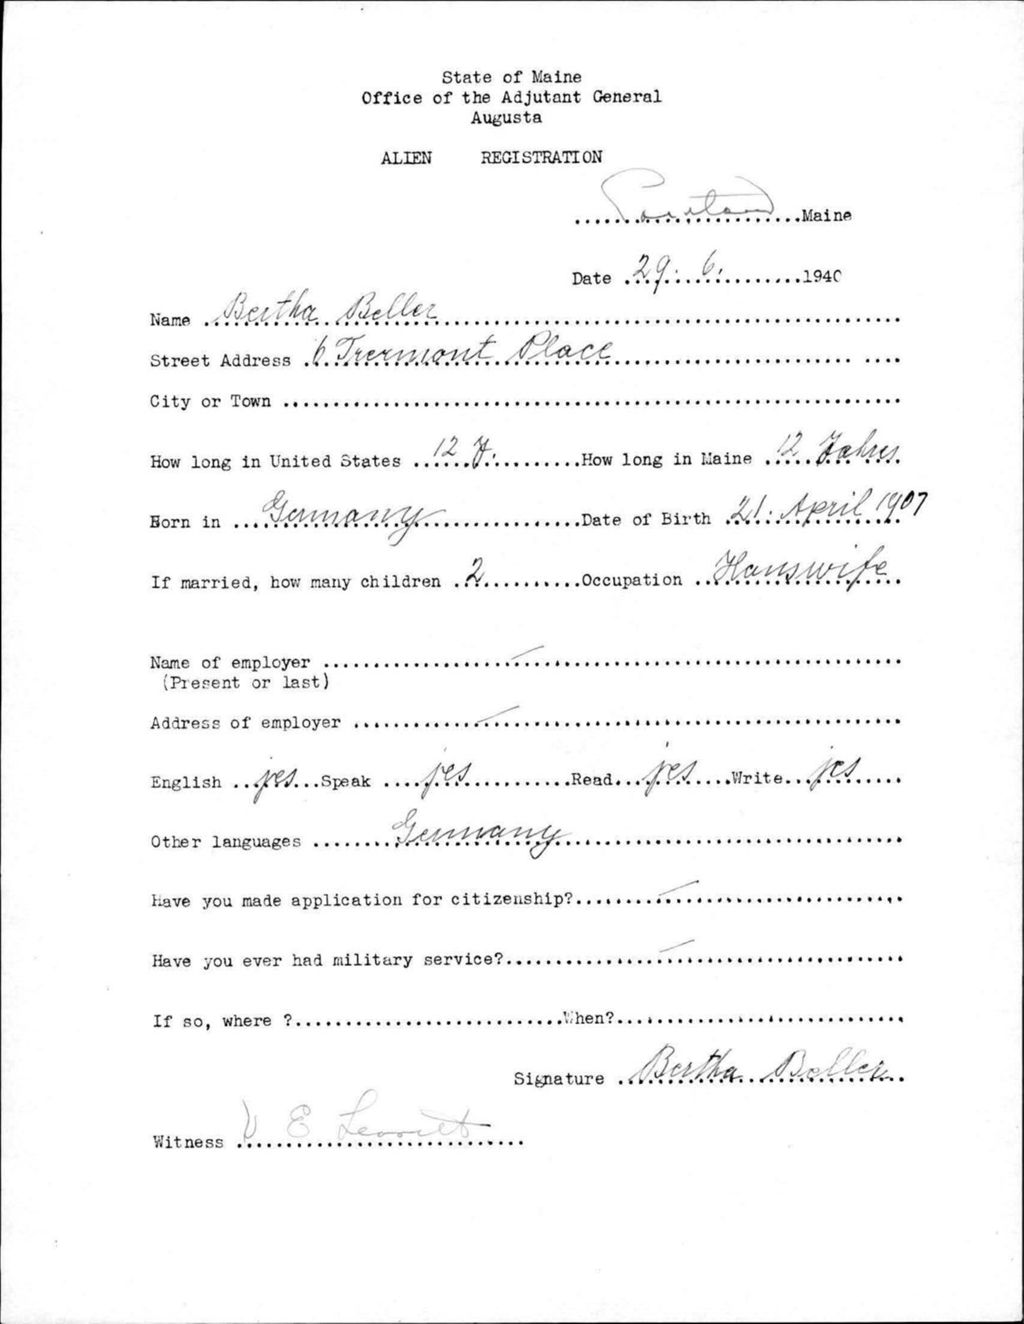 State of Maine
Office of the Adjutant General
Augusta
ALIEN REGISTRATION
Portland Maine
Date 29. 6. 1940
Name Bertha Beller
Street Address 6 Tremont Place
City or Town
How long in United States 12 J. How long in Maine 12 Jahres
Born in Germany Date of Birth 21. April 1907
If married, how many children 2 Occupation Hauswife
Name of employer —
(Present or last)
Address of employer —
English yes Speak yes Read yes Write yes
Other languages Germany
Have you made application for citizenship? —
Have you ever had military service? —
If so, where ? When?
Signature Bertha Beller
Witness V E Leavitt